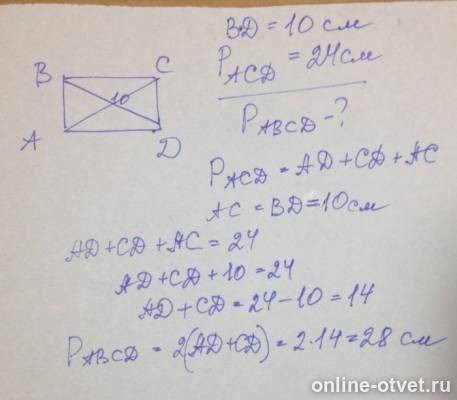 BD = 10 см
P_ACD = 24 см
P_ABCD - ?
B C
10
A D
P_ACD = AD + CD + AC
AC = BD = 10 см
AD + CD + AC = 24
AD + CD + 10 = 24
AD + CD = 24 - 10 = 14
P_ABCD = 2(AD + CD) = 2 · 14 = 28 см
online-otvet.ru